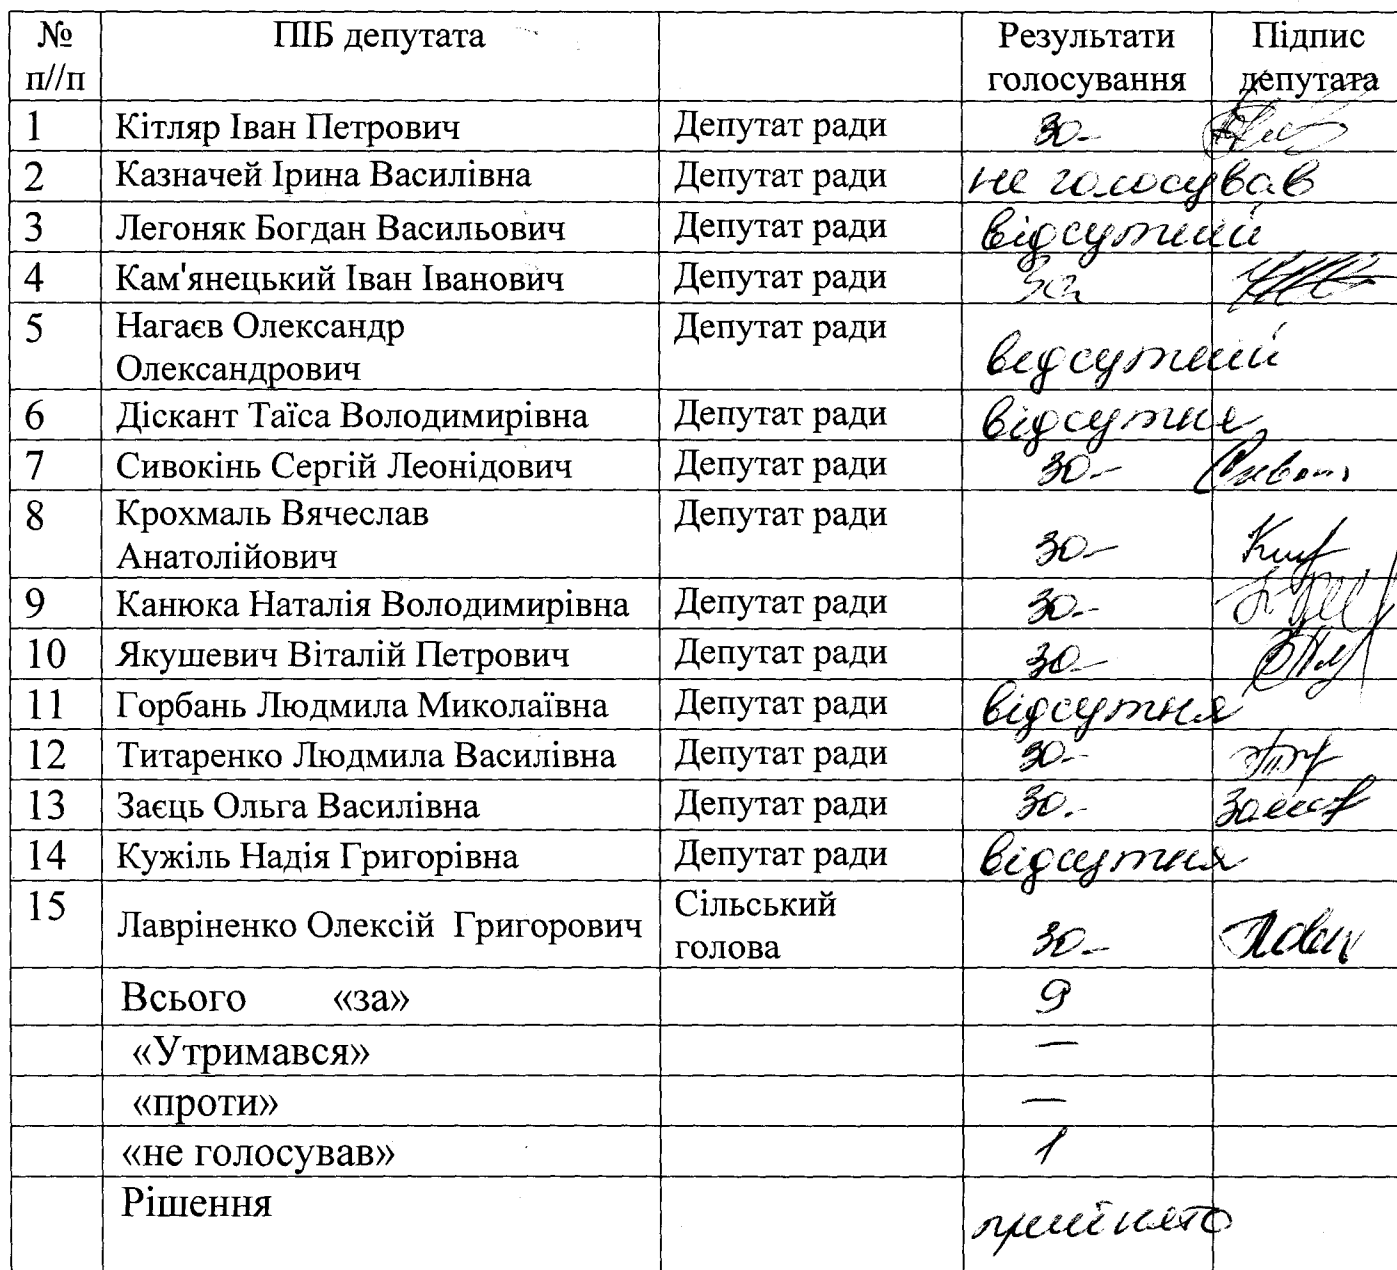 № ПІБ депутата Результати Підпис
п//п голосування депутата
1 Кітляр Іван Петрович Депутат ради за
2 Казначей Ірина Василівна Депутат ради не голосував
3 Легоняк Богдан Васильович Депутат ради відсутній
4 Кам'янецький Іван Іванович Депутат ради за
5 Нагаєв Олександр Депутат ради
Олександрович відсутній
6 Діскант Таїса Володимирівна Депутат ради відсутня
7 Сивокінь Сергій Леонідович Депутат ради за
8 Крохмаль Вячеслав Депутат ради
Анатолійович за
9 Канюка Наталія Володимирівна Депутат ради за
10 Якушевич Віталій Петрович Депутат ради за
11 Горбань Людмила Миколаївна Депутат ради відсутня
12 Титаренко Людмила Василівна Депутат ради за
13 Заєць Ольга Василівна Депутат ради за
14 Кужіль Надія Григорівна Депутат ради відсутня
15 Лавріненко Олексій Григорович Сільський
голова за
Всього «за» 9
«Утримався» —
«проти» —
«не голосував» 1
Рішення прийнято